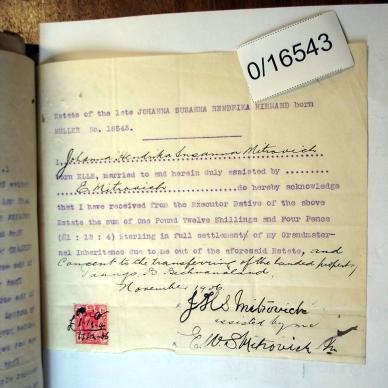 0/16543
Estate of the late JOHANNA SUSANNA HENDRIKA NIEMAND born
MULLER No. 16543.
I, Johanna Hendrika Susanna Mitrovich
born ELLS, married to and herein duly assisted by
E. Mitrovich do hereby acknowledge
that I have received from the Executor Dative of the above
Estate the sum of One Pound Twelve Shillings and Four Pence
(£1 : 12 : 4) Sterling in full settlement of my Grandmater-
nal Inheritance due to me out of the aforesaid Estate, and
Consent to the transferring of the landed property,
Taungs, B. Bechuanaland.
November 1906.
J H S Mitrovich
assisted by me
E. W S Mitrovich